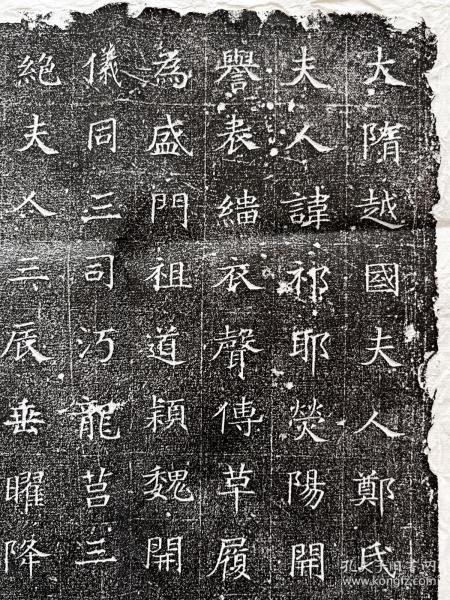 大隋越國夫人鄭氏
夫人諱祁耶熒陽開
譽表緇衣聲傳草履
為盛門祖道穎魏開
儀同三司沔龍莒三
絕夫人三辰垂曜降
孔夫子旧书网
kongfz.com